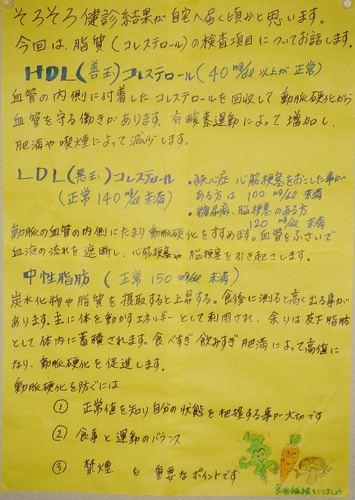 そろそろ健診結果が自宅へ届く頃かと思います。
今回は、脂質(コレステロール)の検査項目についてお話します。
HDL(善玉)コレステロール(40mg/dl以上が正常)
血管の内側に付着したコレステロールを回収して動脈硬化から
血管を守る働きがあります。有酸素運動によって増加し、
肥満や喫煙によって減少します。
LDL(悪玉)コレステロール
(正常140mg/dl未満)
・狭心症、心筋梗塞をおこした事が
ある方は100mg/dl未満
・糖尿病、脳梗塞のある方
120mg/dl未満
動脈の血管の内側にたまり動脈硬化をすすめます。血管をふさいで
血液の流れを遮断し、心筋梗塞や脳梗塞を引き起こします。
中性脂肪(正常150mg/dl未満)
炭水化物や脂質を摂取すると上昇する。食後に測ると高く出る事が
あります。主に体を動かすエネルギーとして利用され、余りは皮下脂肪
として体内に蓄積されます。食べすぎ飲みすぎ肥満によって高値に
なり、動脈硬化を促進します。
動脈硬化を防ぐには
① 正常値を知り自分の状態を把握する事が大切です
② 食事と運動のバランス
③ 禁煙も重要なポイントです